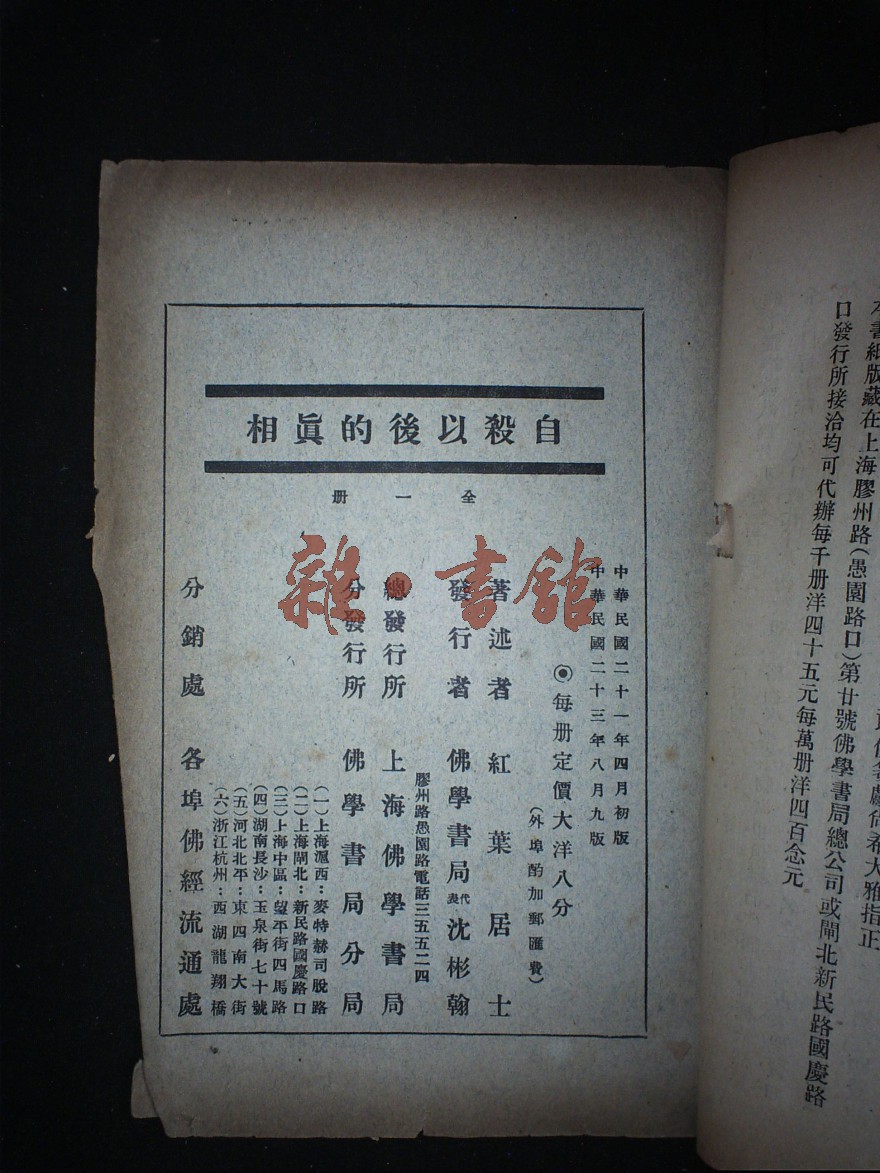 本書紙版藏在上海膠州路(愚園路口)第廿號佛學書局總公司或閘北新民路國慶路
口發行所接洽均可代辦每千册洋四十五元每萬册洋四百念元
自殺以後的眞相
全一册
中華民國二十一年四月初版
中華民國二十三年八月九版
◉每册定價大洋八分
(外埠酌加郵匯費)
著述者 紅葉居士
發行者 佛學書局代表沈彬翰
總發行所 上海佛學書局
膠州路愚園路電話三五五二四
分發行所 佛學書局分局
(一)上海滬西:麥特赫司脫路
(二)上海閘北:新民路國慶路口
(三)上海中區:望平街四馬路
(四)湖南長沙:玉泉街七十號
(五)河北北平:東四南大街
(六)浙江杭州:西湖龍翔橋
分銷處 各埠佛經流通處
雜·書館